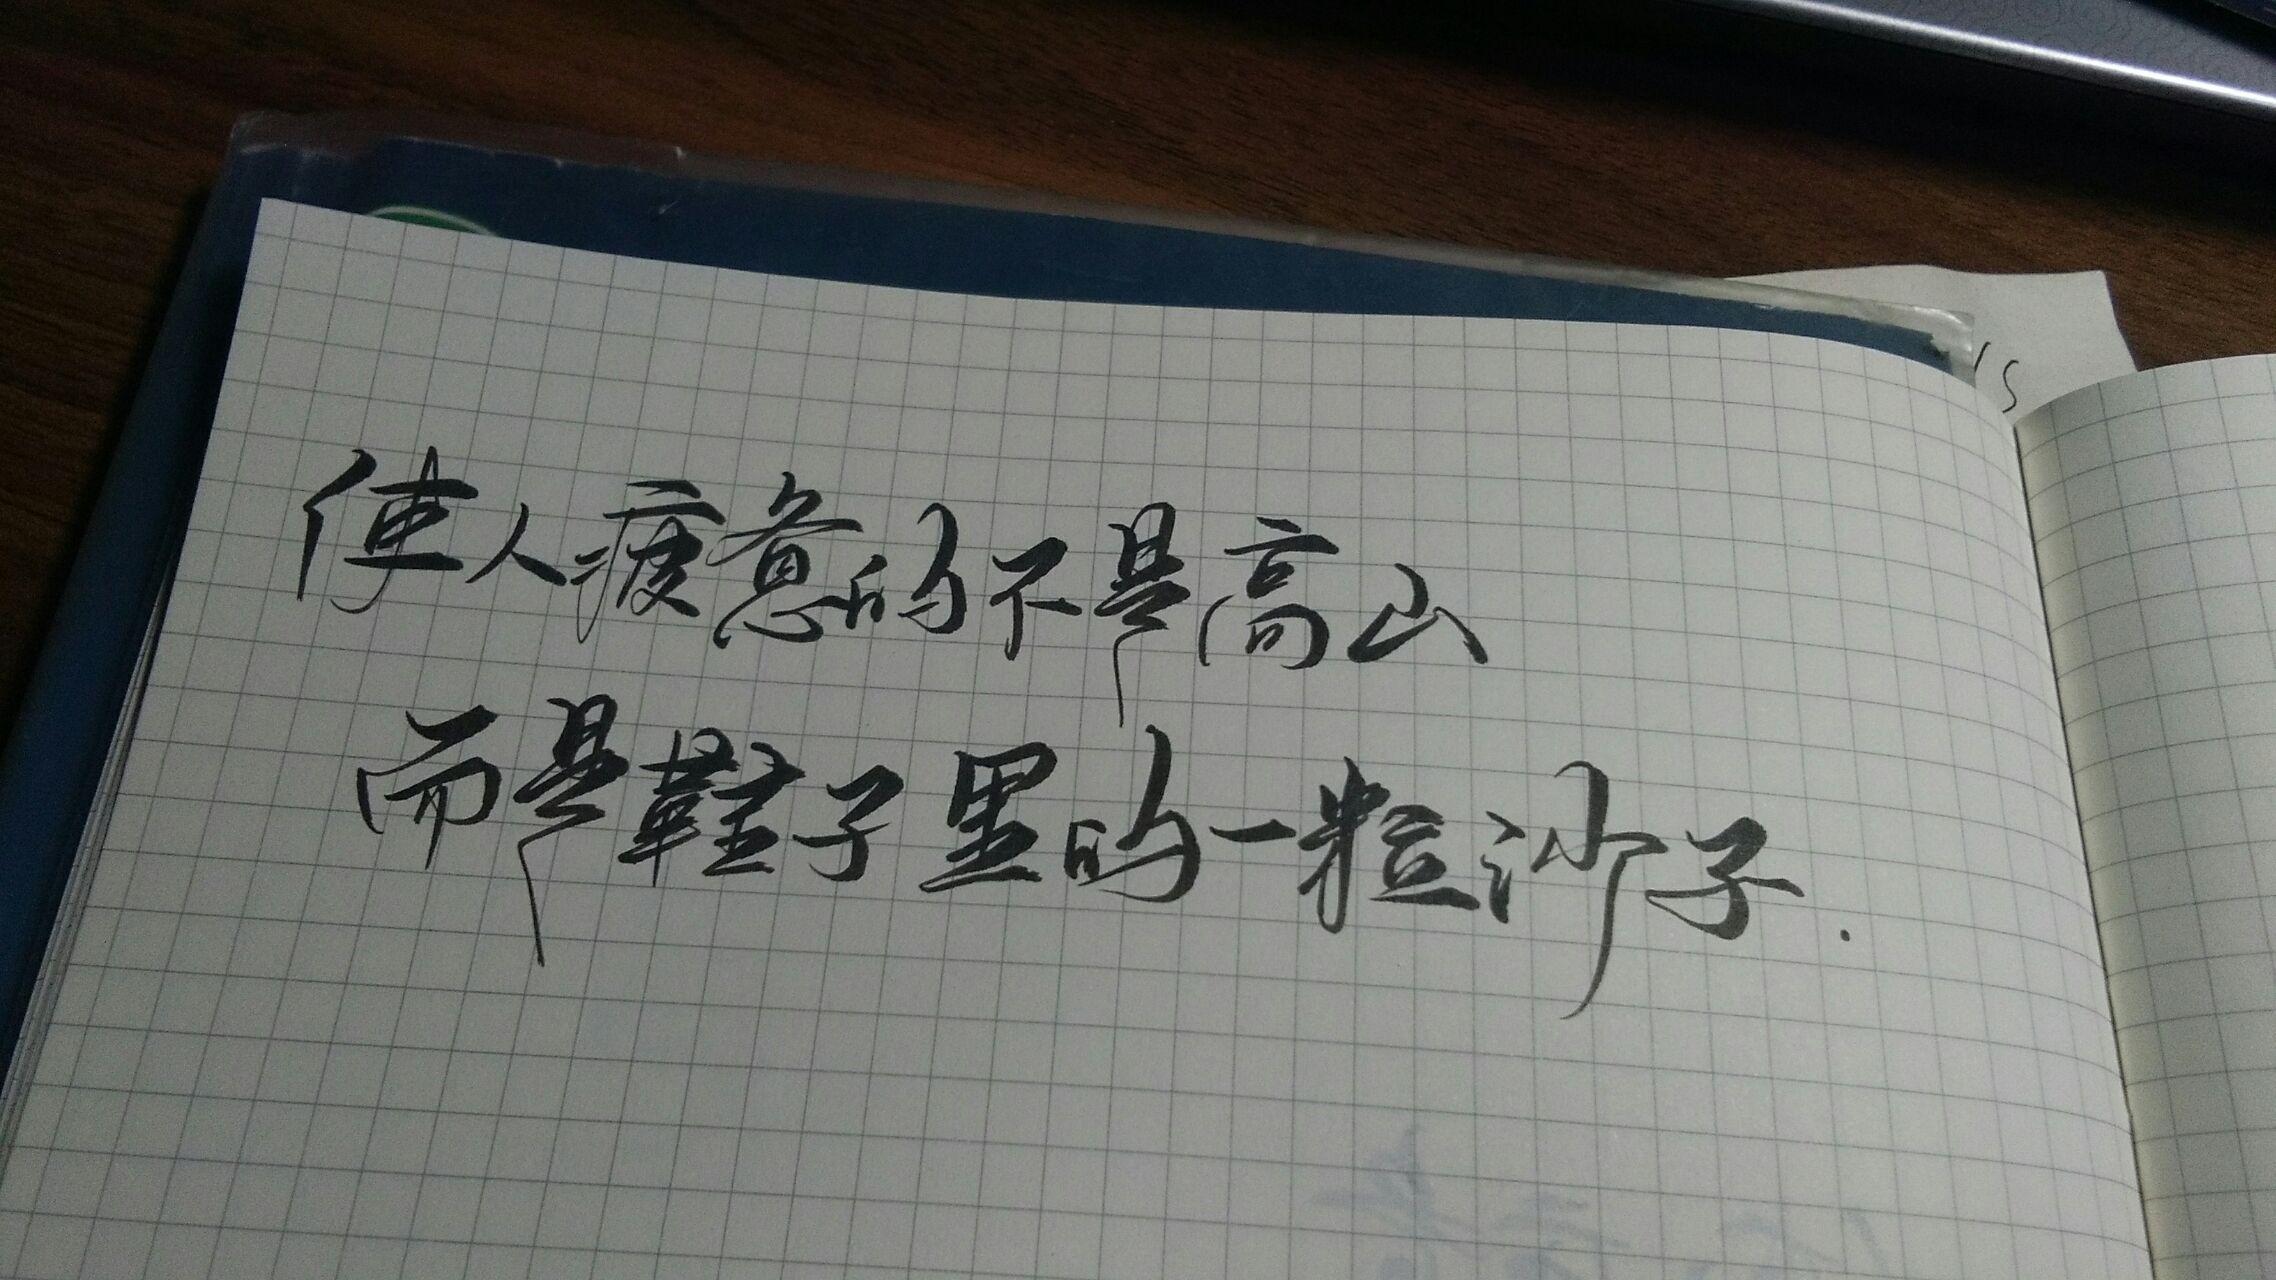 使人疲惫的不是高山
而是鞋子里的一粒沙子.